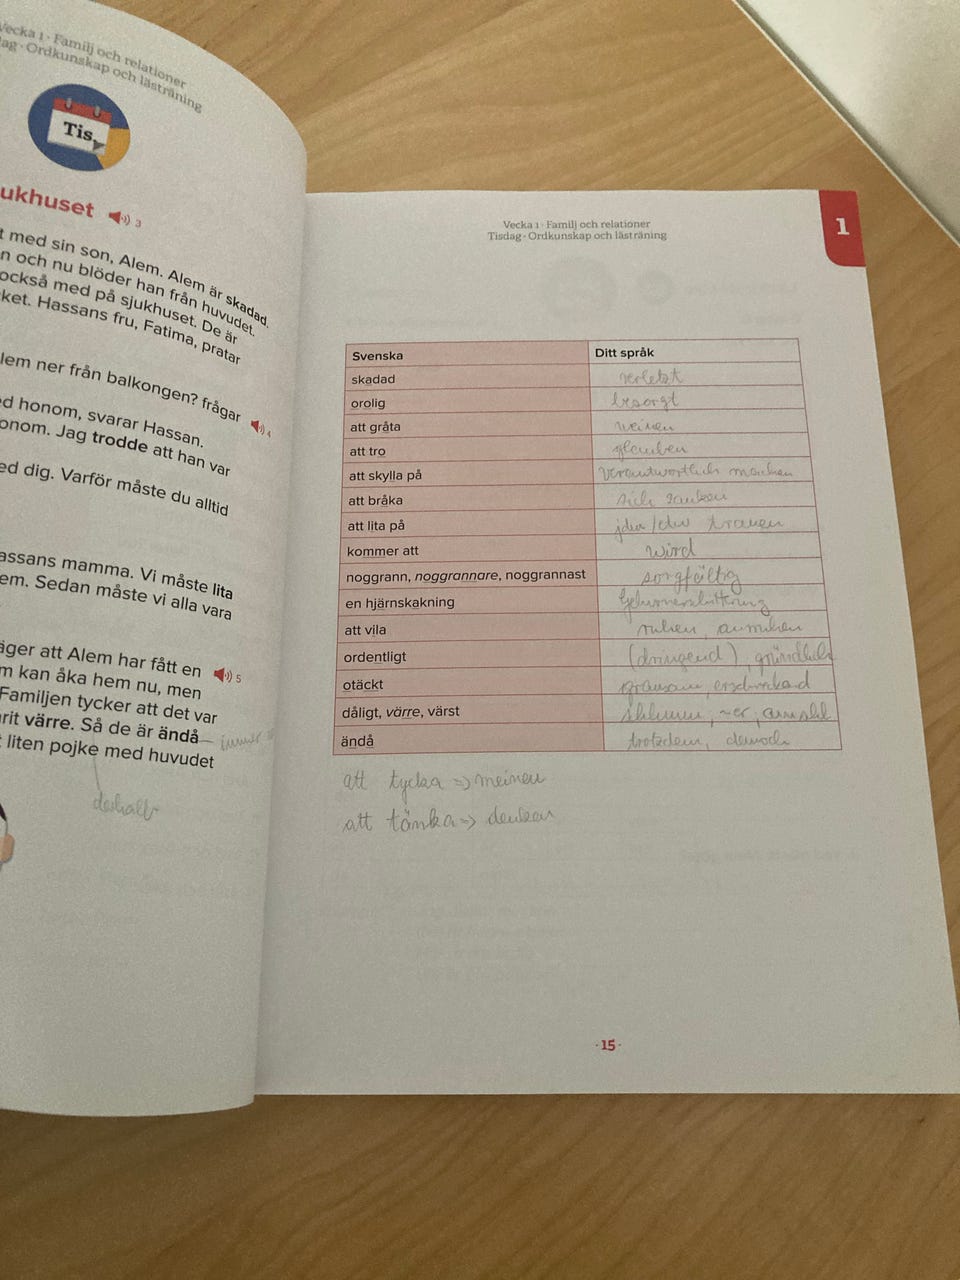 Vecka 1 · Familj och relationer
dag · Ordkunskap och lästräning
Tis
ukhuset 3
t med sin son, Alem. Alem är skadad.
n och nu blöder han från huvudet.
också med på sjukhuset. De är
ket. Hassans fru, Fatima, pratar
lem ner från balkongen? frågar 4
ed honom, svarar Hassan.
onom. Jag trodde att han var
ed dig. Varför måste du alltid
assans mamma. Vi måste lita
em. Sedan måste vi alla vara
äger att Alem har fått en 5
m kan åka hem nu, men
Familjen tycker att det var
rit värre. Så de är ändå immer
t liten pojke med huvudet
deshalb
Vecka 1 · Familj och relationer
Tisdag · Ordkunskap och lästräning
1
Svenska Ditt språk
skadad verletzt
orolig besorgt
att gråta weinen
att tro glauben
att skylla på verantwortlich machen
att bråka sich zanken
att lita på jdm/etw trauen
kommer att wird
noggrann, noggrannare, noggrannast sorgfältig
en hjärnskakning Gehirnerschütterung
att vila ruhen, ausruhen
ordentligt (dringend), gründlich
otäckt grausam, erschreckend
dåligt, värre, värst schlimm, ~er, am
ändå trotzdem, dennoch
att tycka => meinen
att tänka => denken
· 15 ·